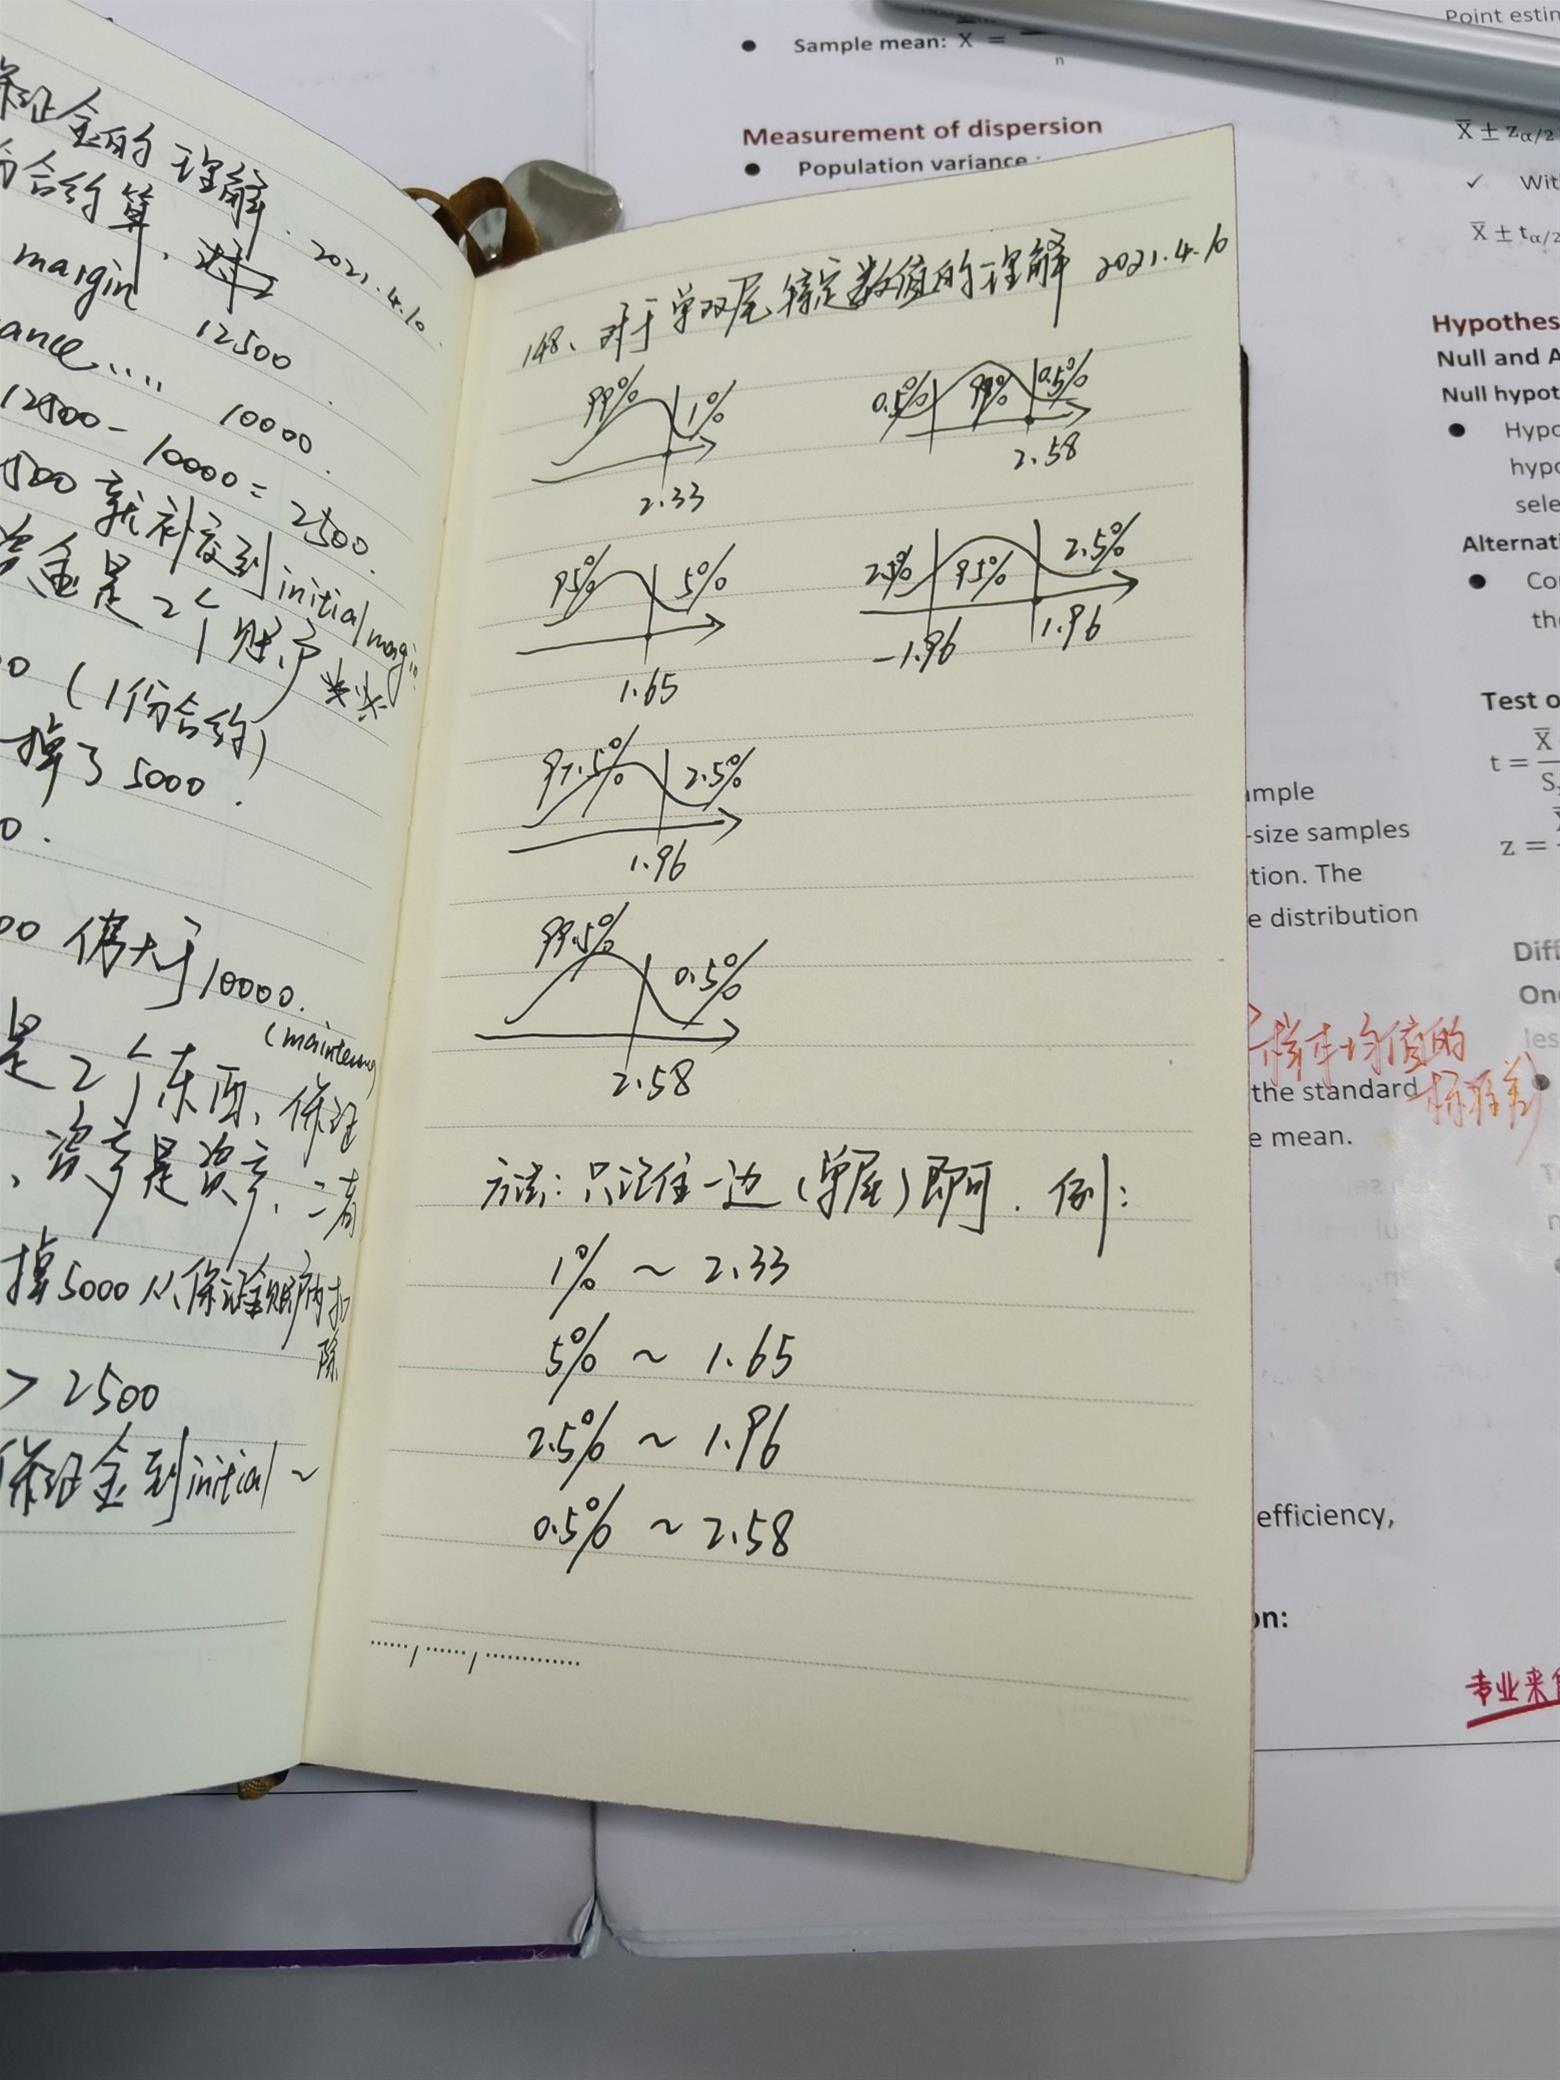 保证金的理解. 2021.4.10
份合约算.
margin 12500
ance.... 10000.
12500-10000=2500.
500 就补交到initial margin
资金是2个账户
0 (1份合约)
掉了5000.
0.
00 倍大于10000.
(maintenan
是2个东西、保证
、资产是资产,二者
掉5000从保证金账户内扣
除
> 2500
保证金到initial ~
148、对于单双尾特定数值的理解 2021.4.10
99% 1%
2.33
0.5% 99% 0.5%
2.58
95% 5%
1.65
2.5% 95% 2.5%
-1.96 1.96
97.5% 2.5%
1.96
99.5% 0.5%
2.58
方法: 只记住一边(单尾)即可. 例:
1% ~ 2.33
5% ~ 1.65
2.5% ~ 1.96
0.5% ~ 2.58
• Sample mean: X̄ =
n
Measurement of dispersion
• Population variance :
Point estin
X̄ ± zα/2
✓ Wit
X̄ ± tα/2
Hypothes
Null and A
Null hypot
• Hypo
hypo
sele
Alternati
• Co
the
Test o
t = X̄
S
z =
ample
-size samples
tion. The
e distribution
Diff
One
les
样本均值的
标准差
the standard
e mean.
efficiency,
on:
专业来